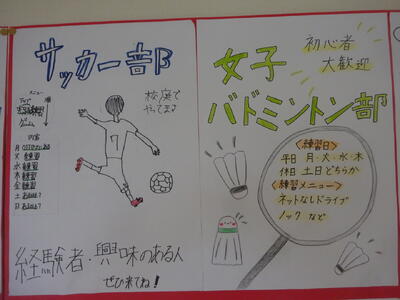 サッカー部
メニュー
校庭で
やってます
7
月
火 練習
水 練習
木 練習
金 練習
土
日
経験者・興味のある人
ぜひ来てね!
女子
バドミントン部
初心者
大歓迎
<練習日>
平日 月・火・水・木
休日 土日どちらか
<練習メニュー>
ネットなしドライブ
ノック など